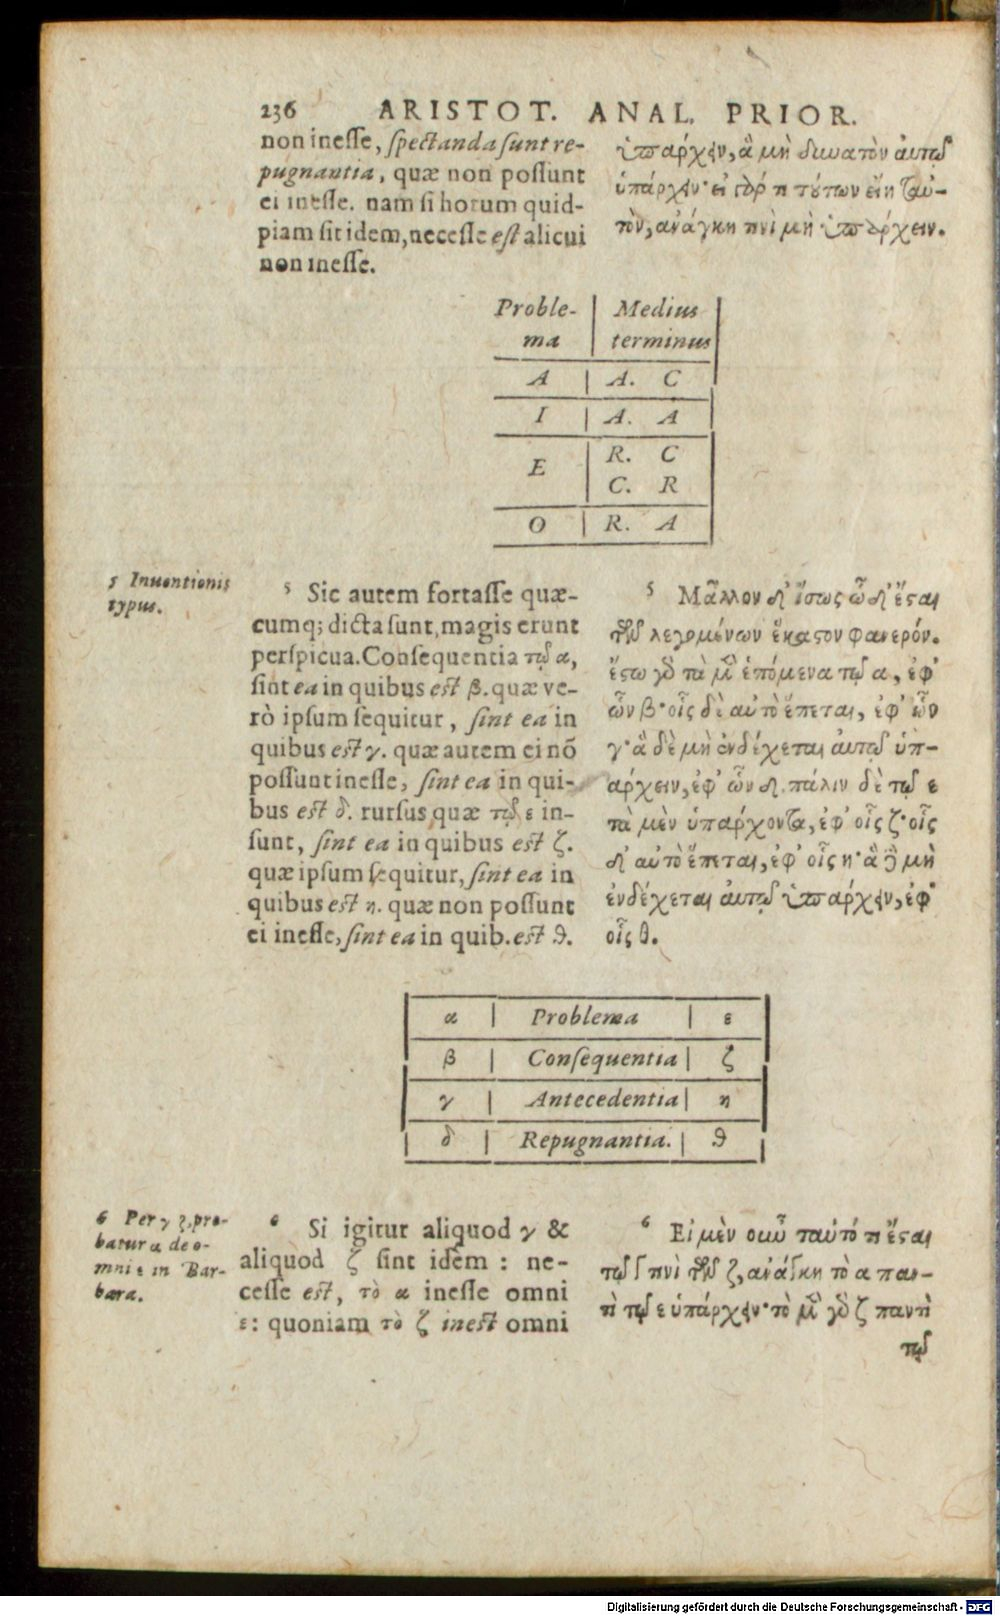 236 ARISTOT. ANAL. PRIOR.
non inesse, spectanda sunt re-
pugnantia, quæ non possunt
ei inesse. nam si horum quid-
piam sit idem, necesse est alicui
non inesse.
ὑπάρχειν, ἃ μὴ δυνατὸν αὐτῷ
ὑπάρχειν· εἰ γάρ τι τούτων εἴη ταὐ-
τὸν, ἀνάγκη τινὶ μὴ ὑπάρχειν.
Proble- | Medius
ma | terminus
A | A. C
I | A. A
E | R. C
C. R
O | R. A
5 Inuentionis
typus.
5 Sic autem fortasse quæ-
cumq; dicta sunt, magis erunt
perspicua. Consequentia τῷ α,
sint ea in quibus est β. quæ ve-
rò ipsum sequitur, sint ea in
quibus est γ. quæ autem ei nõ
possunt inesse, sint ea in qui-
bus est δ. rursus quæ τῷ ε in-
sunt, sint ea in quibus est ζ.
quæ ipsum sequitur, sint ea in
quibus est η. quæ non possunt
ei inesse, sint ea in quib. est θ.
5 Μᾶλλον δ' ἴσως ὧδ' ἔσται
τῶν λεγομένων ἕκαστον φανερόν.
ἔστω γὸ τὰ μὲν ἑπόμενα τῷ α, ἐφ'
ὧν β· οἷς δὲ αὐτὸ ἕπεται, ἐφ' ὧν
γ· ἃ δὲ μὴ ἐνδέχεται αὐτῷ ὑπ-
άρχειν, ἐφ' ὧν δ. πάλιν δὲ τῷ ε
τὰ μὲν ὑπάρχοντα, ἐφ' οἷς ζ· οἷς
δ' αὐτὸ ἕπεται, ἐφ' οἷς η· ἃ δὲ μὴ
ἐνδέχεται αὐτῷ ὑπάρχειν, ἐφ'
οἷς θ.
α | Problema | ε
β | Consequentia | ζ
γ | Antecedentia | η
δ | Repugnantia. | θ
6 Per γ ζ, pro-
batur α de o-
mni ε in Bar-
bara.
6 Si igitur aliquod γ &
aliquod ζ sint idem : ne-
cesse est, τὸ α inesse omni
ε: quoniam τὸ ζ inest omni
6 Εἰ μὲν οὖν ταὐτό τι ἔσται
τῶ Γ τινὶ τῶν ζ, ἀνάγκη τὸ α παν-
τὶ τῷ ε ὑπάρχειν· τὸ μὲν γὸ ζ παντὶ
τῷ
Digitalisierung gefördert durch die Deutsche Forschungsgemeinschaft - DFG